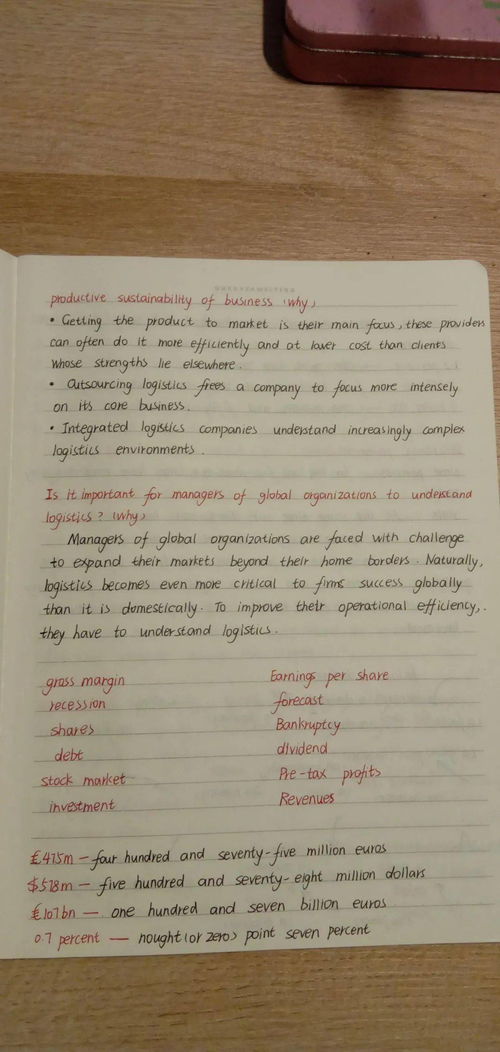 productive sustainability of business (why)
• Getting the product to market is their main focus, these providers
can often do it more efficiently and at lower cost than clients
whose strengths lie elsewhere.
• Outsourcing logistics frees a company to focus more intensely
on its core business.
• Integrated logistics companies understand increasingly complex
logistics environments.
Is it important for managers of global organizations to understand
logistics? (Why)
Managers of global organizations are faced with challenge
to expand their markets beyond their home borders. Naturally,
logistics becomes even more critical to firms success globally
than it is domestically. To improve their operational efficiency,
they have to understand logistics.
gross margin Earnings per share
recession forecast
shares Bankruptcy
debt dividend
stock market Pre-tax profits
investment Revenues
£475m — four hundred and seventy-five million euros
$578m — five hundred and seventy-eight million dollars
£107bn — one hundred and seven billion euros
0.7 percent — nought (or zero) point seven percent